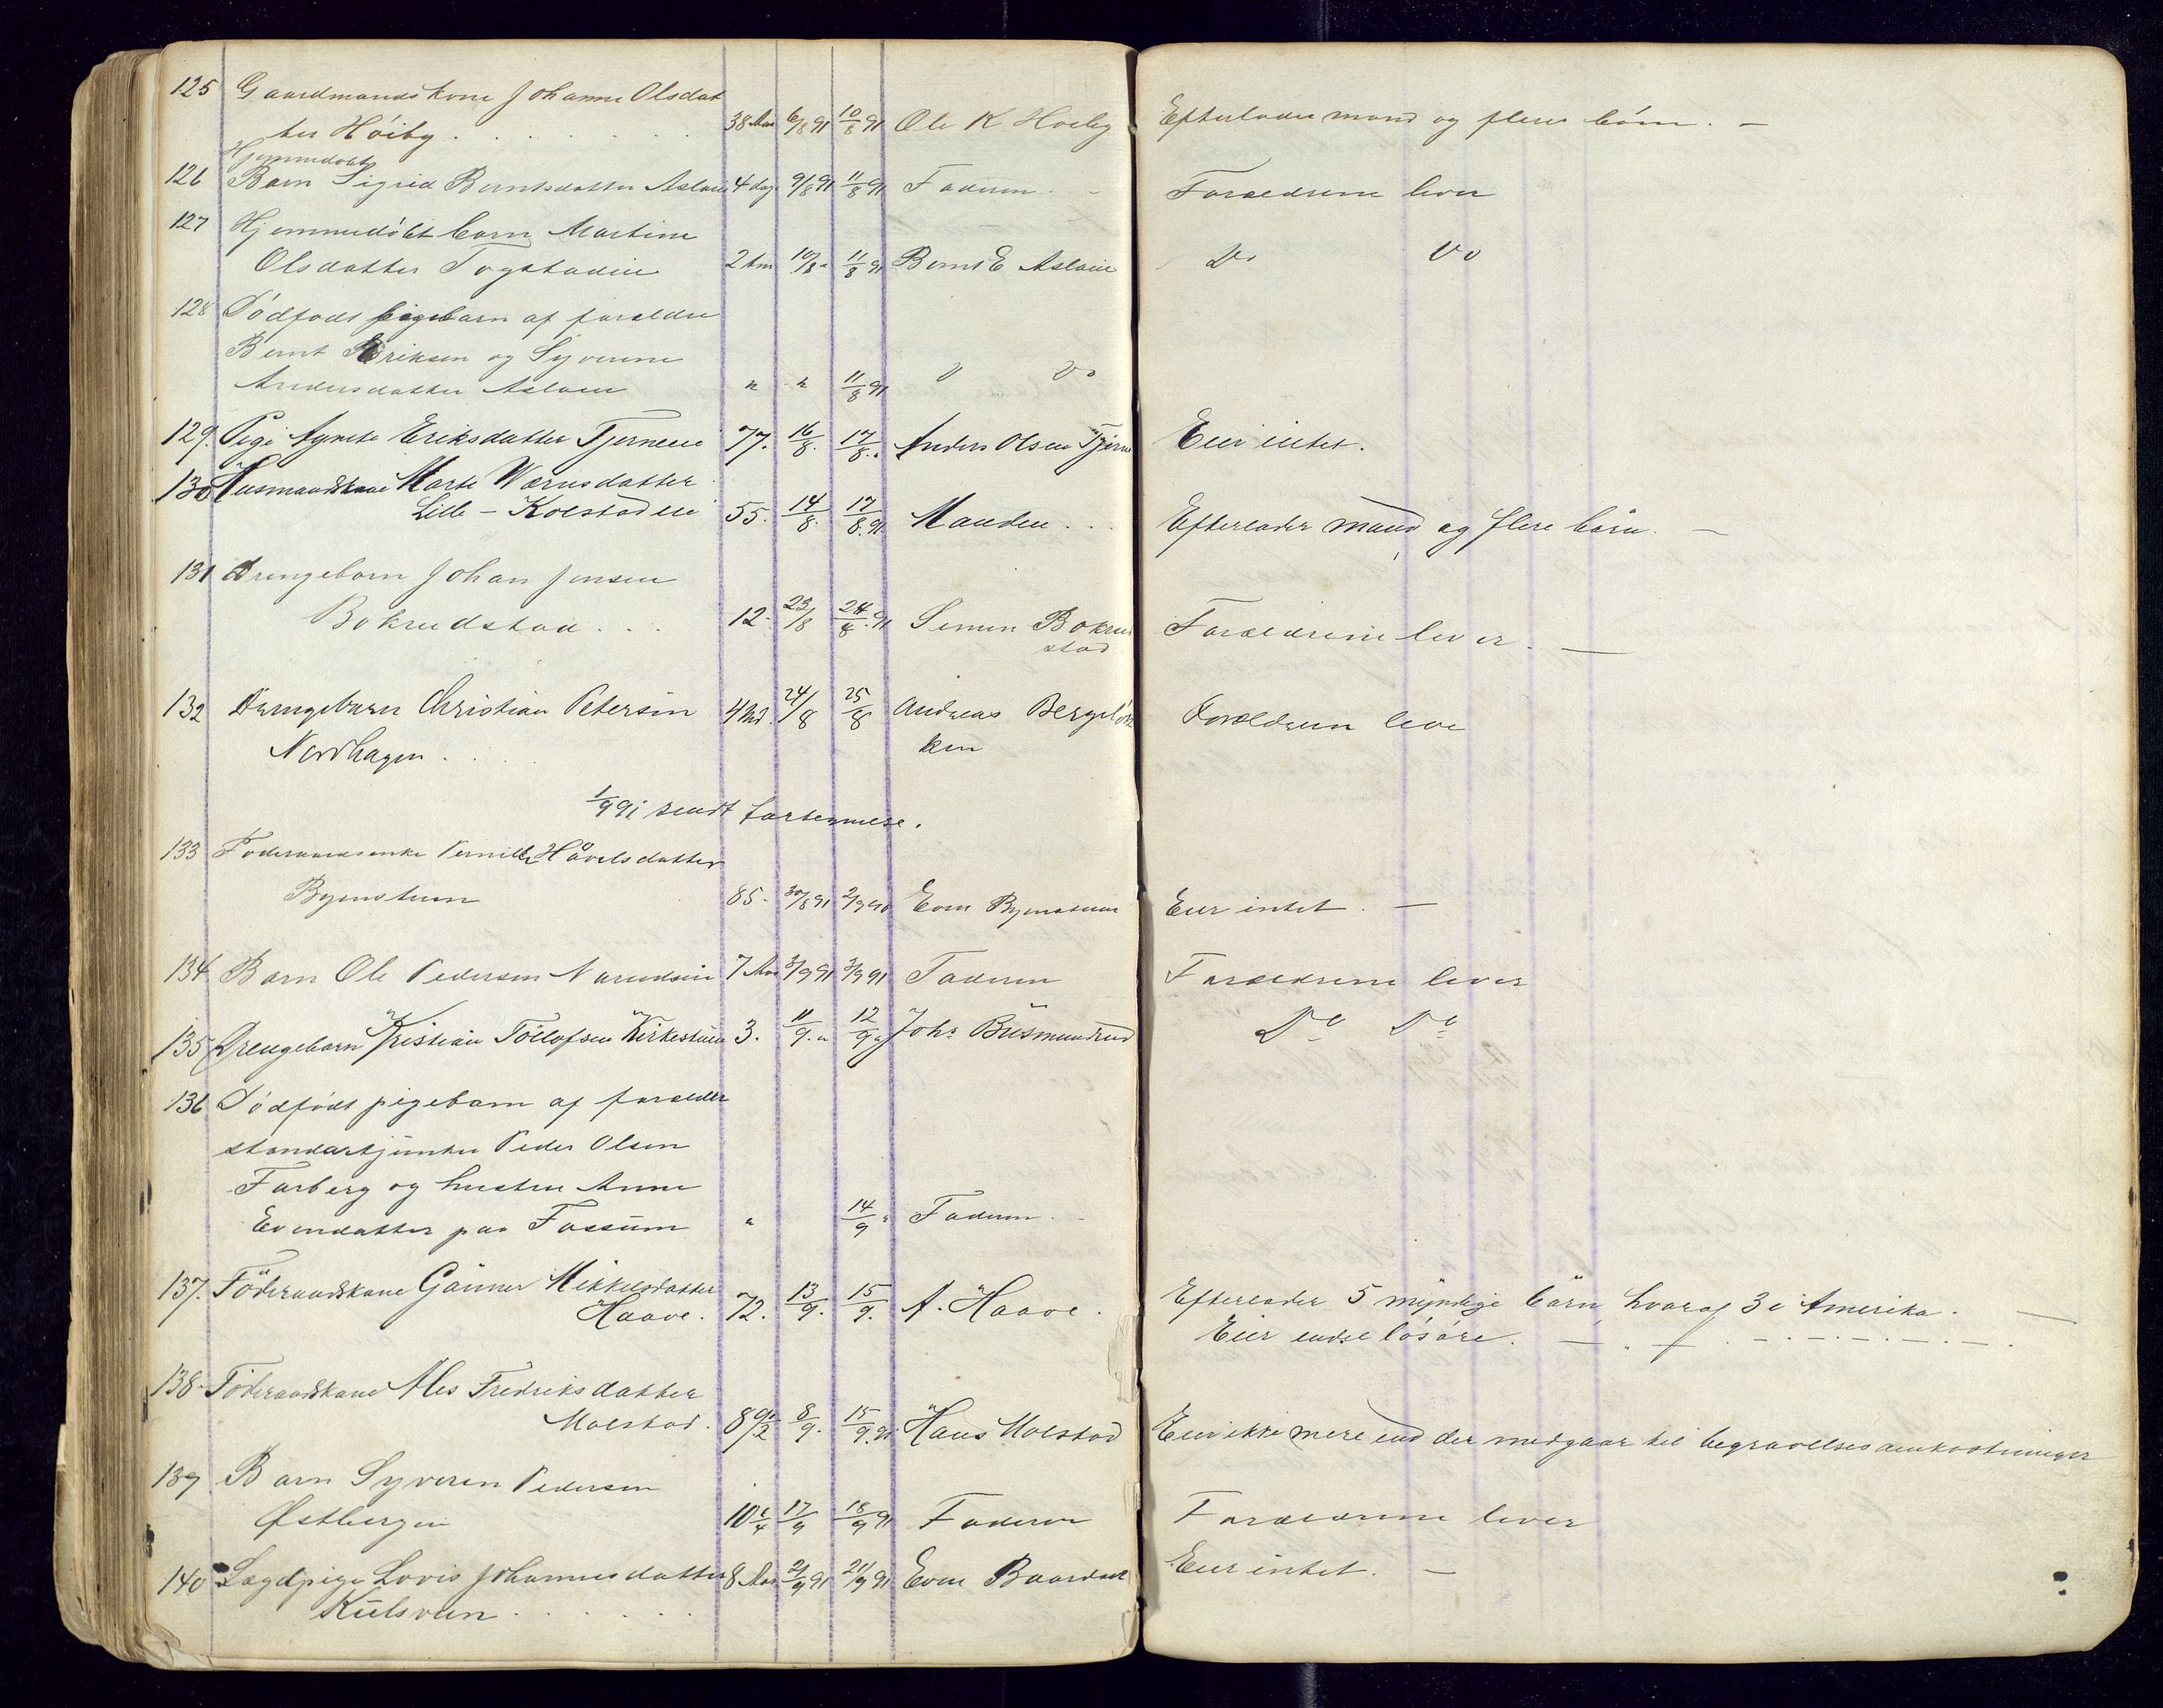 125 Gaardmandskone Johanne Olsdat
ter Höiby . . . 38 Aar 6/8 91 10/8 91 Ole K Hoeby Efterlader mand og flere börn. —
Hjemmedöbt
126 Barn Sigrid Berntsdatter Aslaien 4 dag 9/8 91 11/8 91 Faderen. Foraeldrene lever
127 Hjemmedöbt barn Martine
Olsdatter Togstadeie 2 tim 10/8 " 11/8 91 Bernt E Aslaien Do Do
128 Dödfödt pigebarn af foraeldre
Bernt Eriksen og Syverine
Andersdatter Aslaien " " 11/8 91 Do
129. Pige Agnete Eriksdatter Tjerneeie 77. 16/8. 17/8. Anders Olsen Tjerne Eier intet.
130 Husmandskone Marte Wærnsdatter
Lille - Kolstadeie 55. 14/8. 17/8. 91 Manden . . . Efterlader mand og flere börn. —
131 Drengebarn Johan Jensen
Bokrudstad . . . 12- 23/8 24/8. 91 Simen Bokrud Foraeldrene lever. —
stad
132 Drengebarn Christian Petersen 4 Md. 24/8 25/8 Andreas Bergelök Forældrene leve
Nordhagen . . . ken
1/9 91 sendt fortegnelse.
133 Foderaadsenke Pernille Håvelsdatter
Bymstuen 85- 30/8 91 2/9 90 Even Bymstuen Eier intet. —
134 Barn Ole Pedersen Narudseie 7 Aar 3/9 91 3/9 91 Faderen Foraeldrene lever
135 Drengebarn Kristian Töllofsen Kirkestuen 3. 11/9. " 12/9 " Johs Busmundrud Do Do
136 Dödfödt pigebarn af foraelder
standartjunker Peder Olsen
Farberg og hustru Anne
Evendatter paa Fossum " 14/9 " Faderen. -
137. Föderaadskone Gunner Mikkelsdatter Efterlader 5 myndige börn, hvoraf 3 i Amerika. —
Haave. 72. 13/9. 15/9. A. Haave. Eier endel lösöre. —
138. Föderaadskone Ales Fredriksdatter
Molstad. 89 1/2 8/9. 15/9. 91 Hans Molstad Eier ikke mere end der medgaar til begravelsesomkostninger
139 Barn Syveren Pedersen
Østbergen 10 1/4 17/9 18/9 91 Faderen Foraeldrene lever
140 Lægdpige Lovis Johannesdatter 8 Aar 21/9 91 24/9 91 Even Baardset Eier intet. —
Kulsveen . . . .